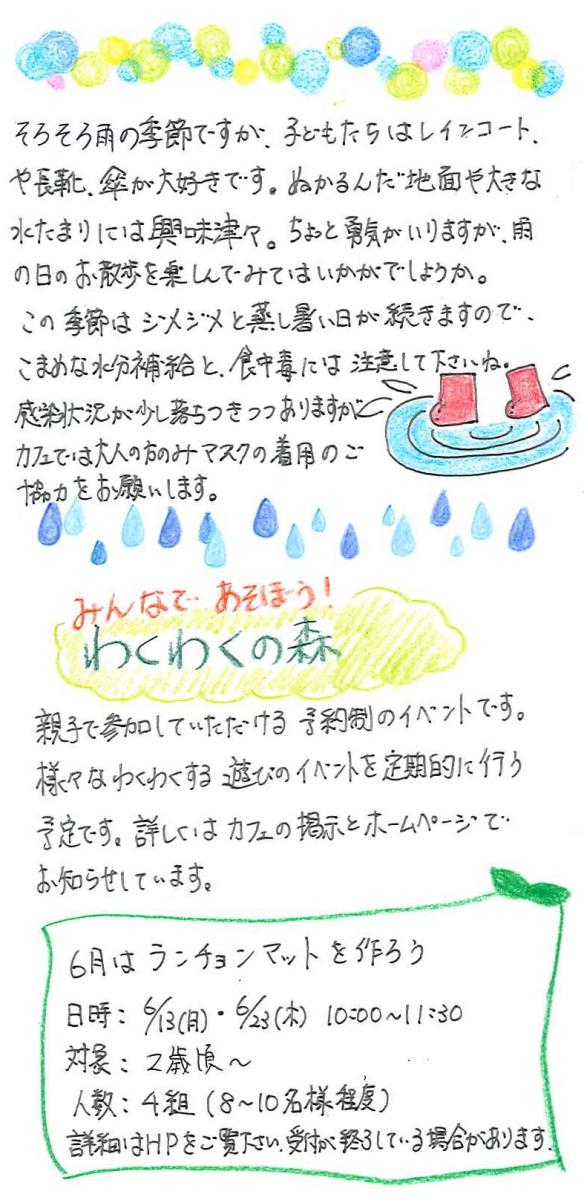 そろそろ雨の季節ですが、子どもたちはレインコート、
や長靴、傘が大好きです。ぬかるんだ地面や大きな
水たまりには興味津々。ちょっと勇気がいりますが、雨
の日のお散歩を楽しんでみてはいかがでしょうか。
この季節はジメジメと蒸し暑い日が続きますので、
こまめな水分補給と、食中毒には注意して下さいね。
感染状況が少し落ちつきつつありますが
カフェでは大人の方のみマスクの着用のご
協力をお願いします。
みんなであそぼう!
わくわくの森
親子で参加していただける予約制のイベントです。
様々なわくわくする遊びのイベントを定期的に行う
予定です。詳しくはカフェの掲示とホームページで
お知らせしています。
6月はランチョンマットを作ろう
日時:6/13(月)・6/23(木) 10:00~11:30
対象:2歳頃~
人数:4組(8~10名様程度)
詳細はHPをご覧下さい。受付が終了している場合があります。